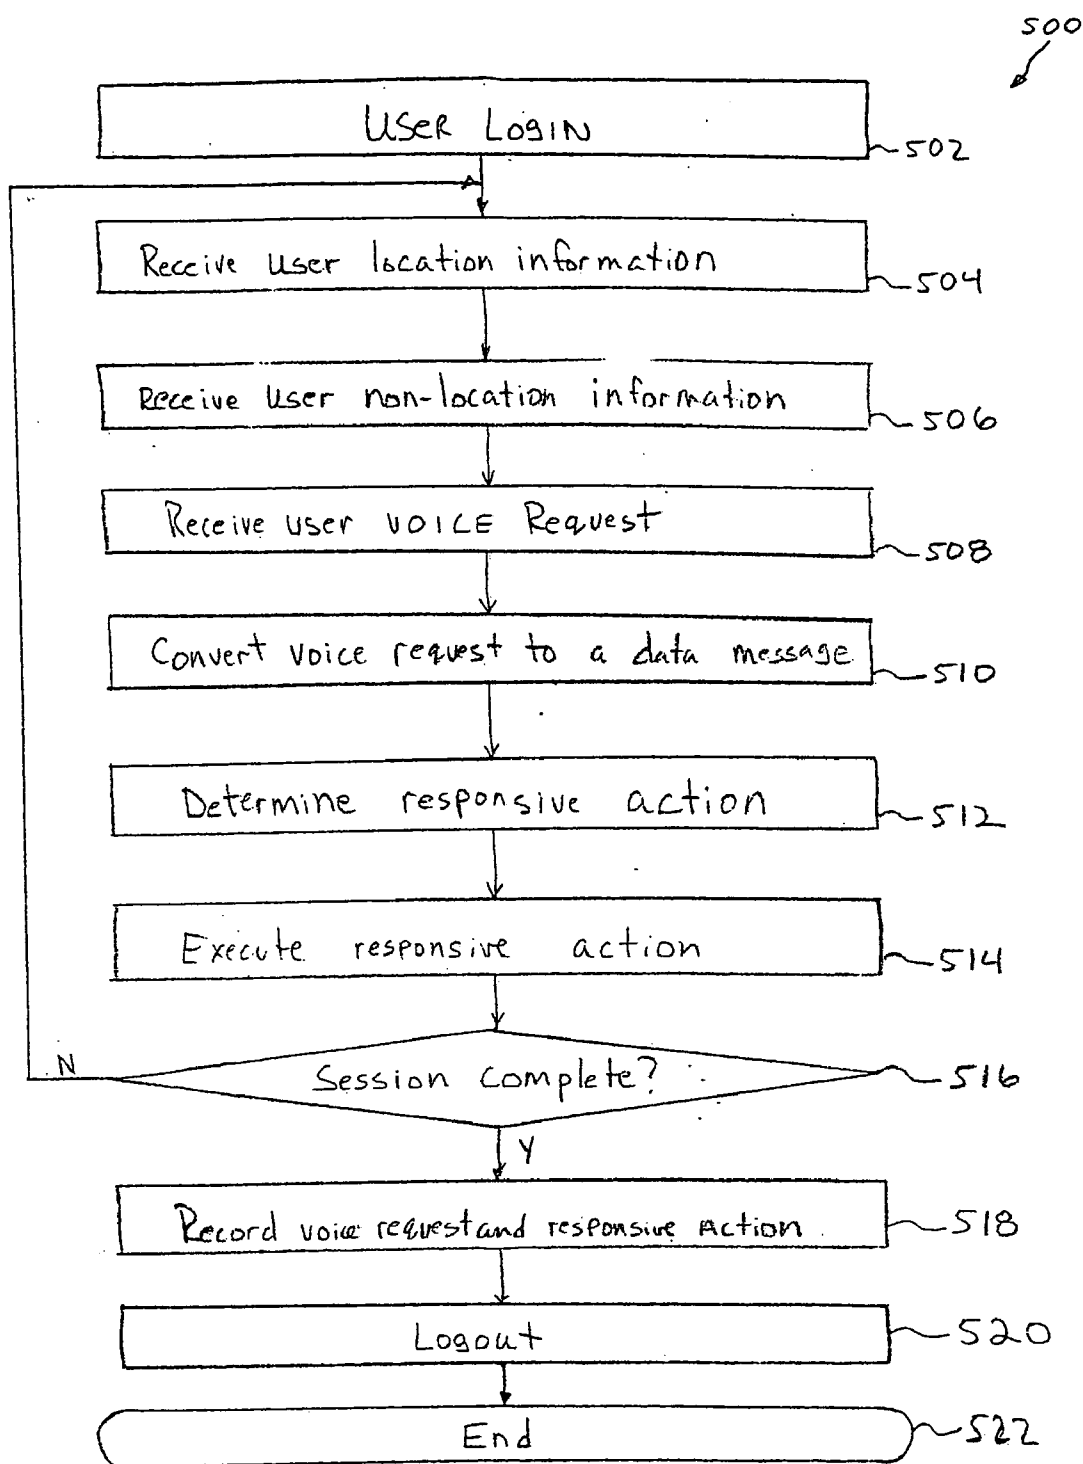 500
USER LOGIN
502
Receive user location information
504
Receive user non-location information
506
Receive user VOICE Request
508
Convert voice request to a data message
510
Determine responsive action
512
Execute responsive action
514
N
Session complete?
516
Y
Record voice request and responsive Action
518
Logout
520
End
522